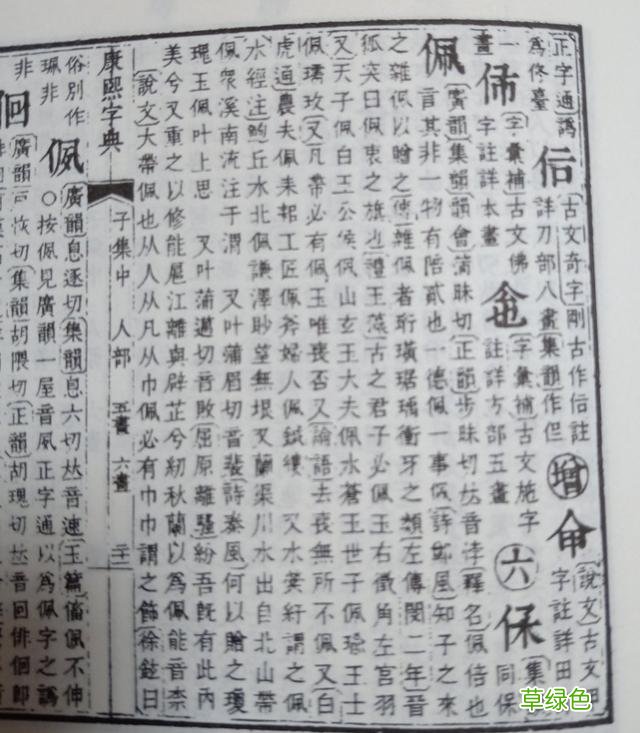 正字通譌爲佟臺
𠈇 古文奇字剛古作𠈇註詳刀部八畫集韻作但
增 㑒 說文古文 字註詳田
一畫
㑂 字彙補古文佛字註詳本畫
㐌 字彙補古文施字註詳方部五畫
六 保 集 同保
佩 廣韻集韻韻會蒲昧切正韻步昧切𠀤音悖釋名佩倍也
言其非一物有陪貳也一德佩一事佩詩鄭風知子之來
之雜佩以贈之傳雜佩者珩璜琚瑀衝牙之類左傳閔二年晉
狐突曰佩衷之旗也禮玉藻古之君子必佩玉右徵角左宮羽
又天子佩白玉公侯佩山玄玉大夫佩水蒼玉世子佩瑜玉士
佩瓀玟又凡帶必有佩玉唯喪否又論語去喪無所不佩又白
虎通農夫佩耒耜工匠佩斧婦人佩鍼縷 又水縈紆謂之佩
水經注鮑丘水北佩謙澤眇望無垠又蘭渠川水出自北山帶
佩衆溪南流注于渭 又叶蒲眉切音裴詩秦風何以贈之瓊
瑰玉佩叶上思 又叶蒲邁切音敗屈原離騷紛吾旣有此內
美兮又重之以修能扈江離與辟芷兮紉秋蘭以爲佩能音柰
說文大帶佩也从人从凡从巾佩必有巾巾謂之飾徐鉉曰
康熙字典 子集中 人部 五畫 六畫 二十
俗別作珮非
㑉 廣韻息逐切集韻息六切𠀤音速玉篇㑉不伸
○按佩見廣韻一屋音夙正字通以爲佩字之譌
非
徊 廣韻 集韻胡隈切正韻胡瑰切𠀤音回徘徊卽
草绿色